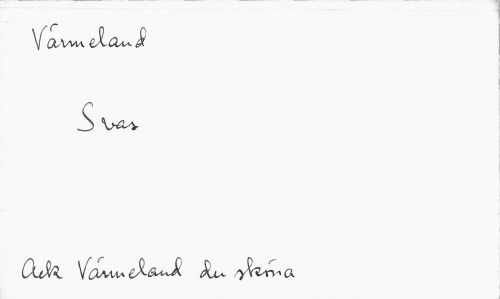 Värmeland
Svar
Ack Värmeland du sköna